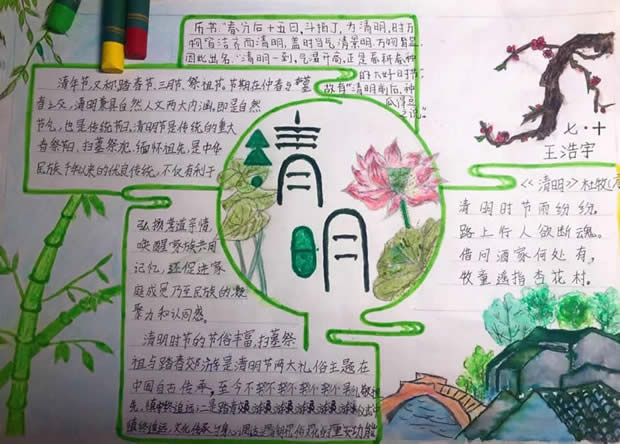 历书:"春分后十五日,斗指丁,为清明,时万
物皆洁齐而清明,盖时当气清景明,万物皆显
因此得名。"清明一到,气温升高,正是春耕春种
的大好时节,
故有"清明前后,种
瓜得豆
之说。"
清年节,又称踏春节、三月节、祭祖节,节期在仲春与
春之交,清明兼具自然人文两大内涵,即是自然
节气,也是传统节日,清明节是传统的重大
春祭节、扫墓祭祀、缅怀祖先,是中华
民族千年以来的优良传统,不仅有利于
弘扬孝道亲情,
唤醒家族共同
记忆,还促进家
庭成员乃至民族的凝
聚力和认同感。
清明时节的节俗丰富,扫墓祭
祖与踏春郊游是清明节两大礼俗主题在
中国自古传承,至今不
先,慎终追远;二是踏青郊游
慎终追远,文化传承与身心
清明
七·十
王浩宇
《清明》杜牧(唐
清明时节雨纷纷,
路上行人欲断魂。
借问酒家何处有,
牧童遥指杏花村。